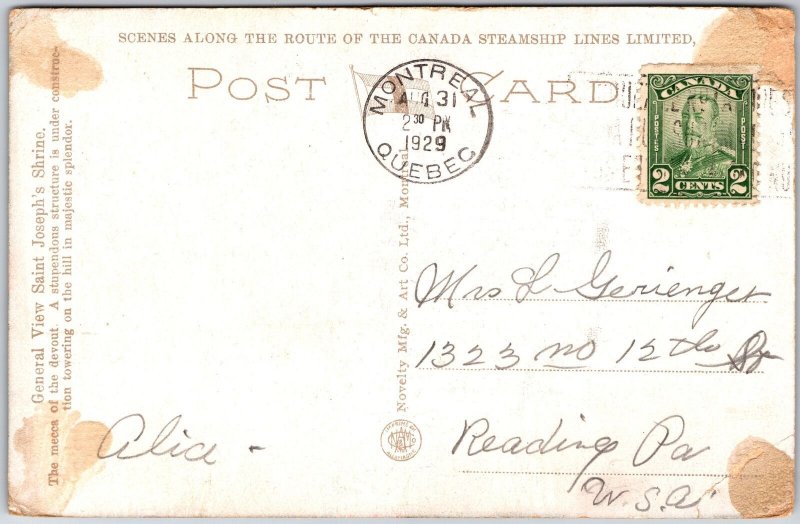 SCENES ALONG THE ROUTE OF THE CANADA STEAMSHIP LINES LIMITED,
POST CARD
MONTREAL
AUG 31
2 30 PM
1929
QUEBEC
CANADA
POSTES POST
2 CENTS 2
General View Saint Joseph's Shrine.
The mecca of the devout. A stupendous structure is under construc-
tion towering on the hill in majestic splendor.
Novelty Mfg. & Art Co. Ltd., Montreal
Mrs L Gerienger
1323 no 12th St
Reading Pa
U.S.A.
Alice -